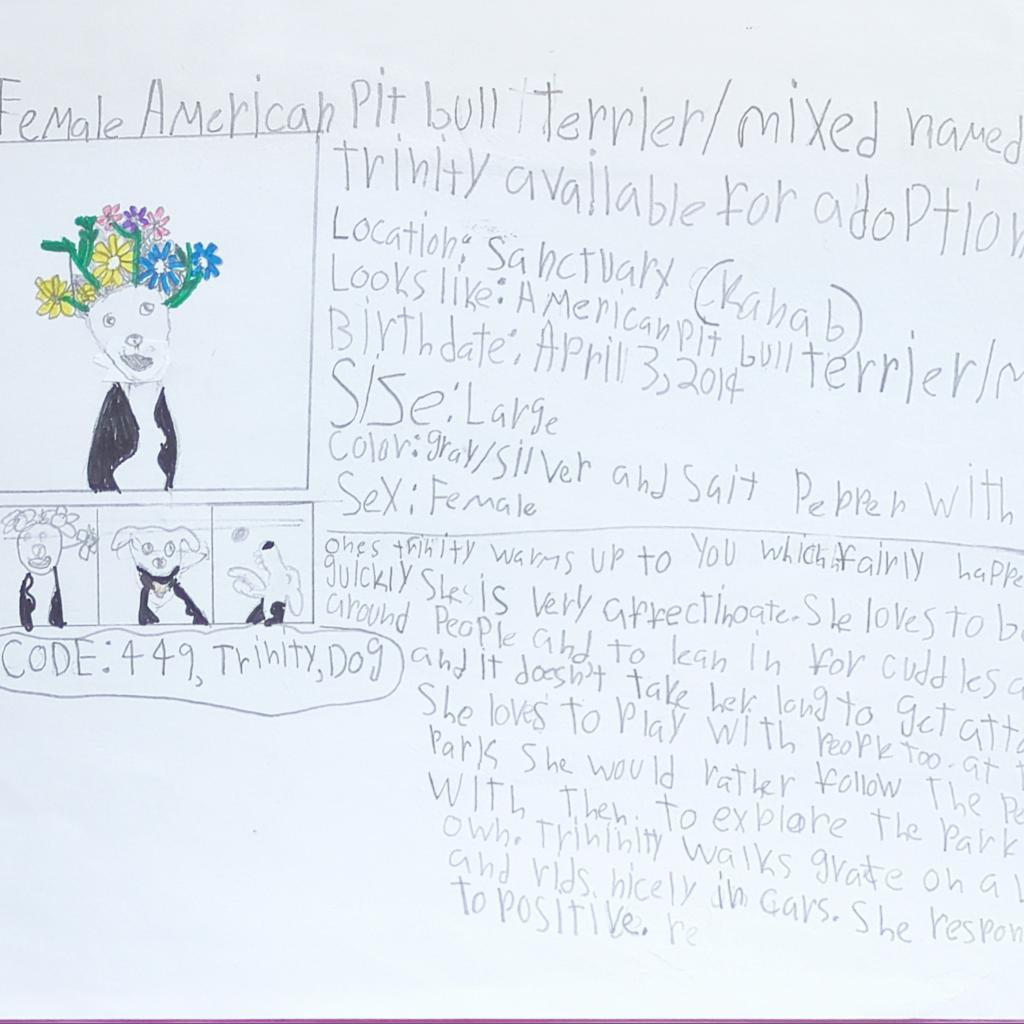 Female American Pit bull terrier/mixed named
trinity available for adoption
Location: Sanctuary (Kanab)
Looks like: American pit bull terrier/m
Birthdate: April 3, 2014
SiSe: Large
Color: gray/silver and Salt Pepper with
Sex: Female
ones trinity warms up to you which fairly happe
quickly She is very affectinoate. She loves to be
around People and to lean in for cuddles a
and it doesn't take her long to get atta
CODE: 449, Trinity, Dog
She loves to Play with People too. at t
Park She would rather follow The Pe
With Then to explore the Park
own. Trininity walks grate on a l
and rids nicely in cars. She respon
to positive. re